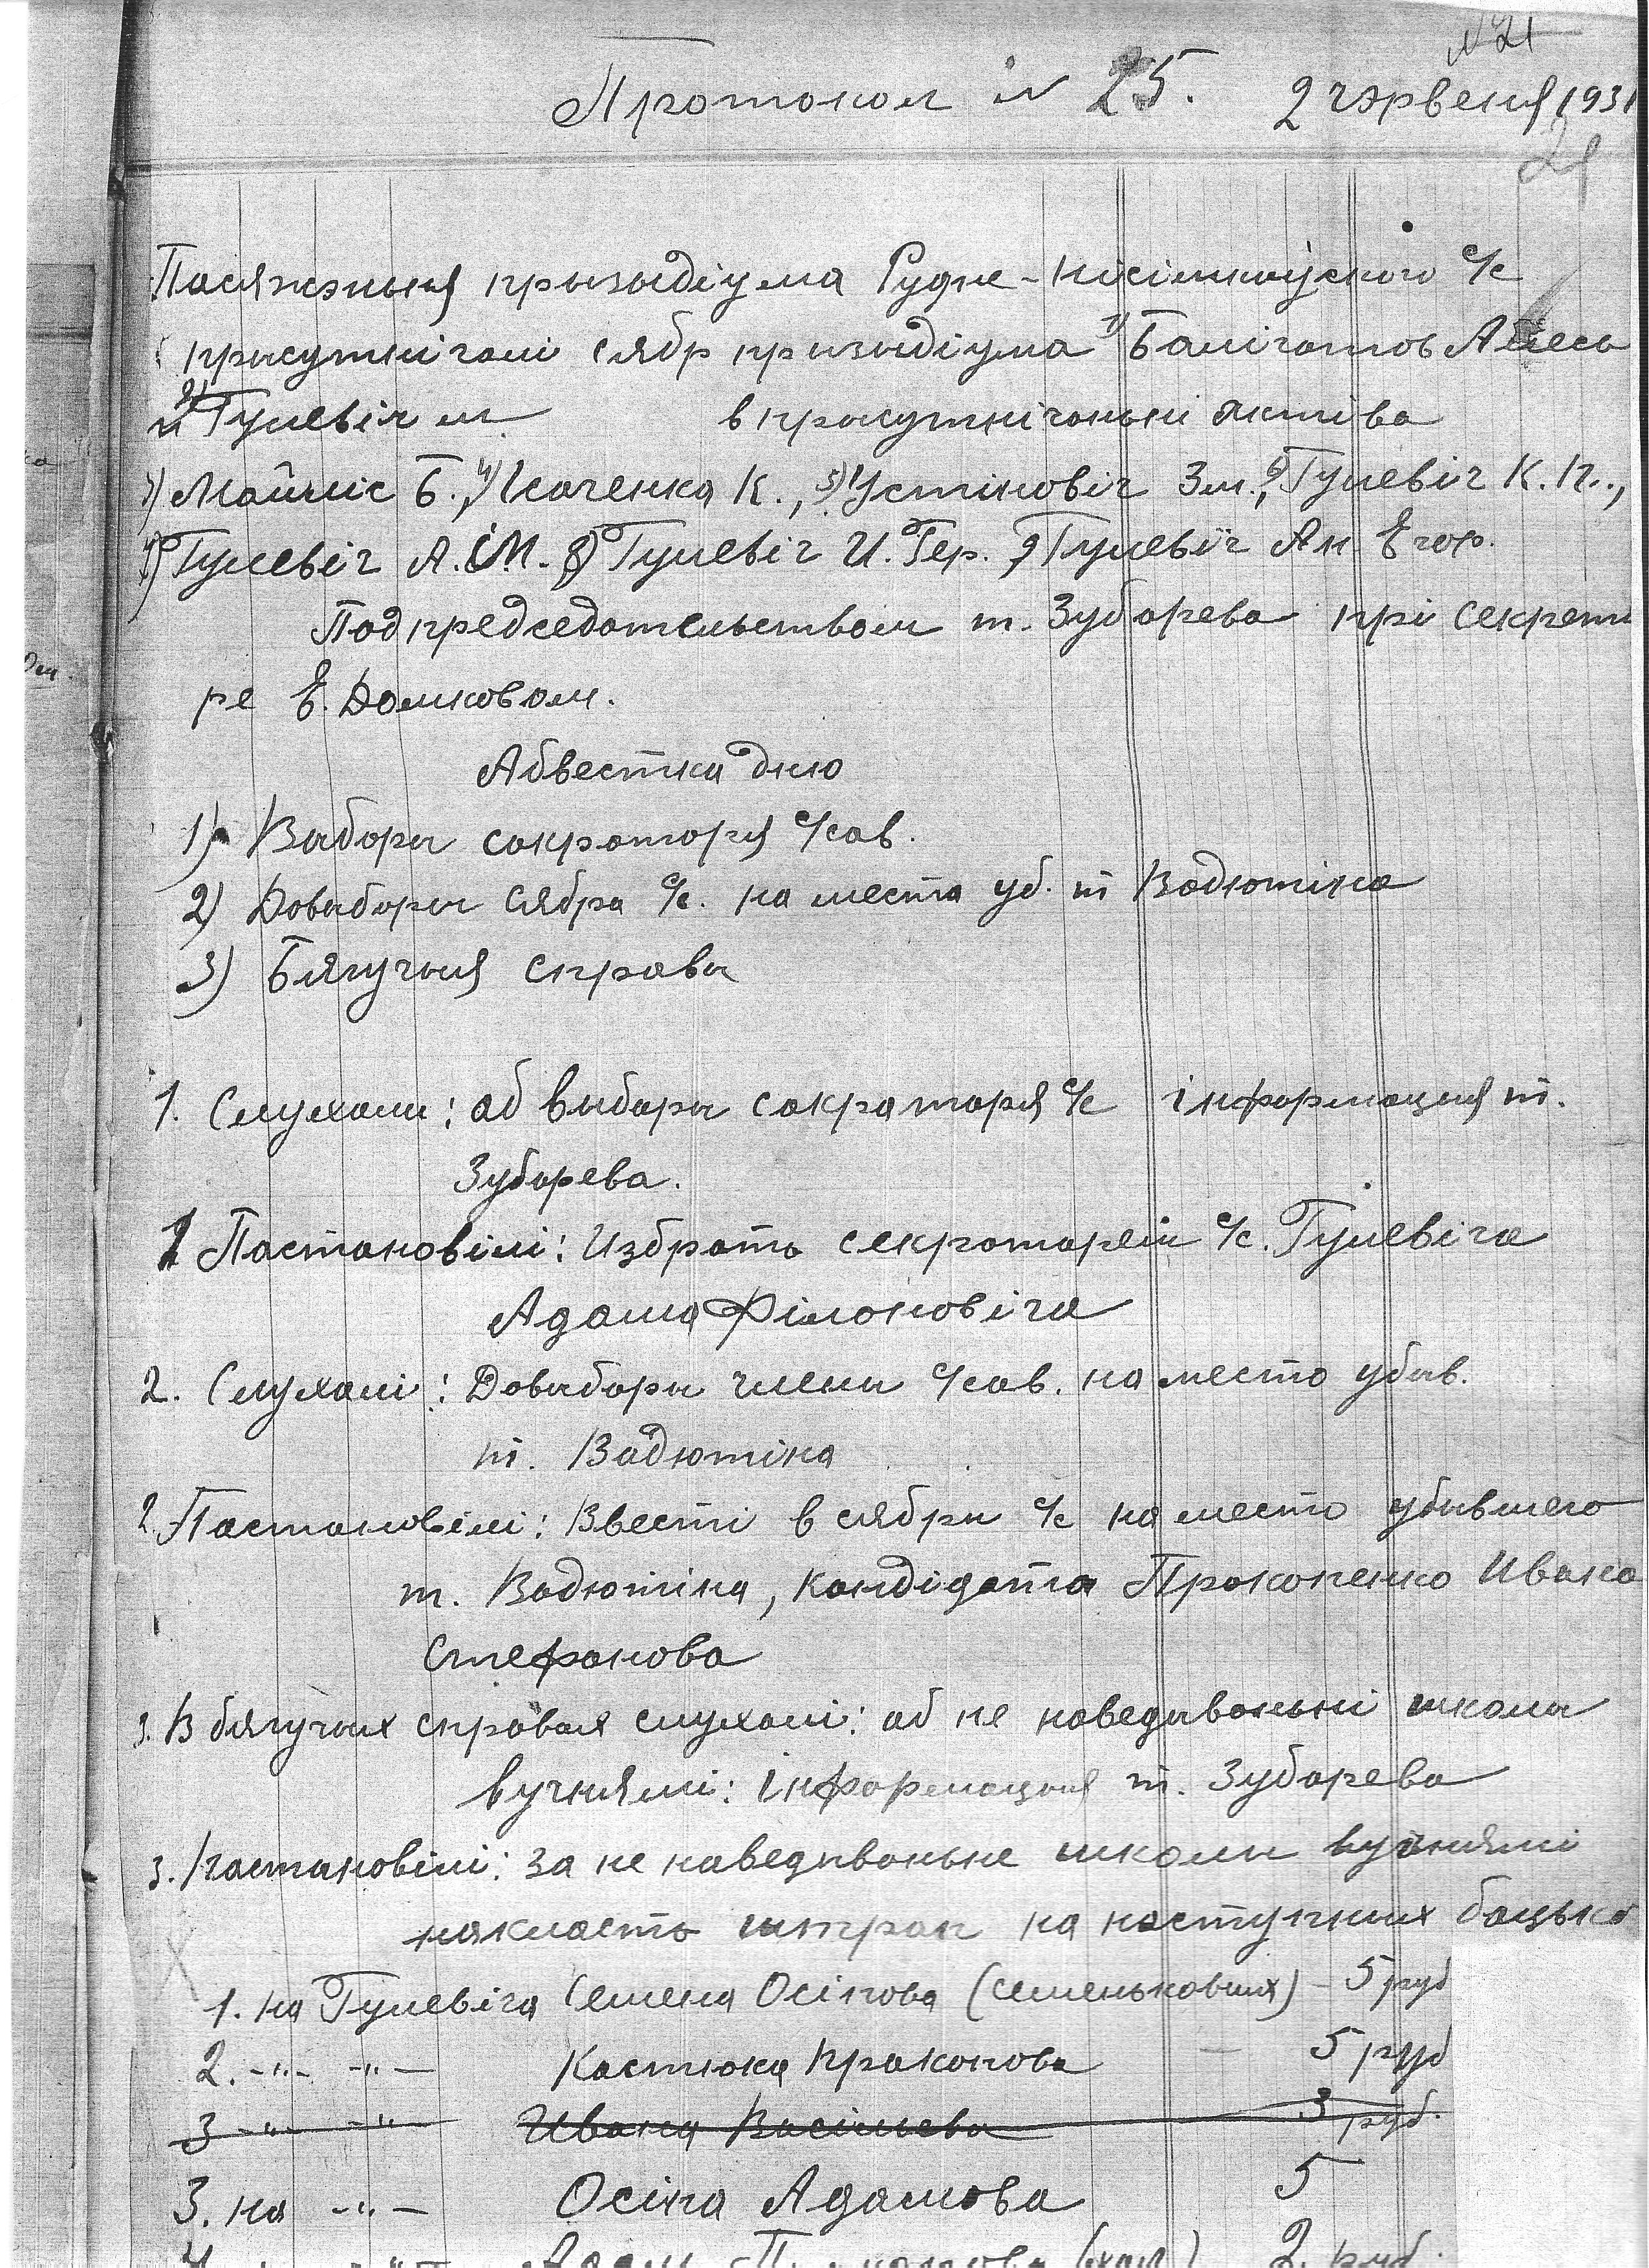 № 21
Протокол № 25. 2 чэрвеня 1931
21
Пасяжэньня прызыдіума Рудне- с/с
прысутнічалі сябр призыдіума 1) Балічатов Алесь
и 2) Гулевіч м в прысутнічаньні актіва
3) Майміс Б., 4) Исаченка К., 5) Устіновіч Зм., 6) Гулевіч К. П.,
7) Гулевіч А. С.М. 8) Гулевіч И. Гер. 9) Гулевіч Ан Егор.
Под председательством т. Зубарева прі секрета
ре Е. Домковом.
Абвестка дню
1) Выборы сакратаря с/сав.
2) Довыборы сябра с/с. на места уб. т Вадютіна
3) Бягучыя справы
1. Слухали: аб выборы сакратаря с/с інформацыя т.
Зубарева.
1 Пастановілі: Избрать секротарем с/с. Гулевіча
Адама Філоновіча
2. Слухалі: Довыборы члены с/сав. на место убыв.
т. Вадютіна
2. Пастановілі: Ввесті в сябры с/с на место убывшего
т. Вадютіна, кандідата Прокопенко Ивана
Стефанова
3. В бягучых справах слухалі: аб не наведываньні школы
вучнямі: інформацыя т. Зубарева
3. Пастановілі: за не наведываньне школы вучнямі
накласть штрап на наступных бацько
1. на Гулевіча Семена Осіпова (семеньковых) - 5 руб
2. -"- -"- Кастюка Пракопова - 5 руб
3 -"- -"- Ивана Васільева 3 руб.
3. на -"- Осіпа Адамова 5
2. руб.